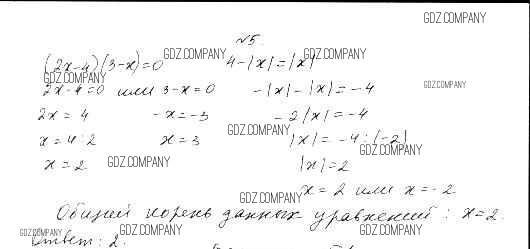 GDZ.COMPANY
№5.
GDZ.COMPANY GDZ.COMPANY
(2x-4)(3-x)=0 4-|x|=|x|
GDZ.COMPANY GDZ.COMPANY
2x-4=0 или 3-x=0 -|x|-|x|=-4
2x=4 -x=-3 -2|x|=-4
GDZ.COMPANY
x=4:2 x=3 |x|=-4:(-2)
GDZ.COMPANY GDZ.COMPANY
x=2 |x|=2
GDZ.COMPANY x=2 или x=-2
Общий корень данных уравнений: x=2.
GDZ.COMPANY GDZ.COMPANY GDZ.COMPANY
Ответ: 2.